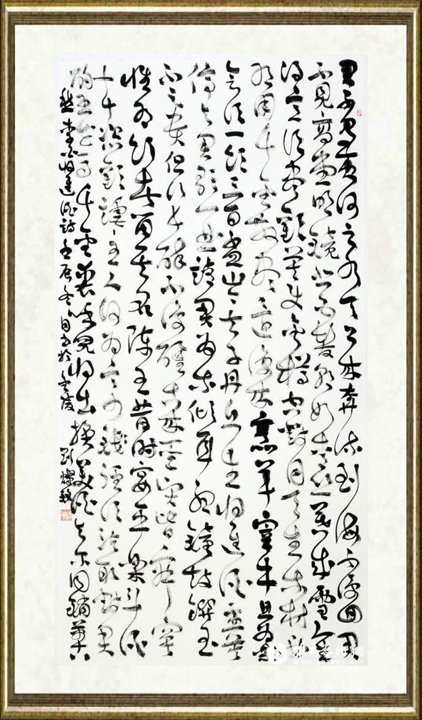 君不見黃河之水天上來奔流到海不復回君
不見高堂明鏡悲白髮朝如青絲暮成雪人生
得意須盡歡莫使金樽空對月天生我材必
有用千金散盡還復來烹羊宰牛且為樂
會須一飲三百杯岑夫子丹丘生將進酒杯莫
停與君歌一曲請君為我傾耳聽鐘鼓饌玉
不足貴但願長醉不復醒古來聖賢皆寂寞
惟有飲者留其名陳王昔時宴平樂斗酒
十千恣歡謔主人何為言少錢徑須沽取對君
酌五花馬千金裘呼兒將出換美酒與爾同銷萬古
愁 李白將進酒詩 壬辰冬月書於 劉